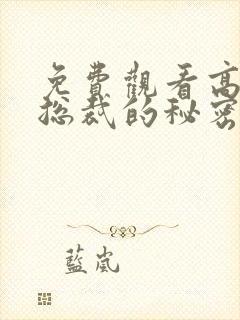 免費觀看高
总裁的秘密
藍嵐